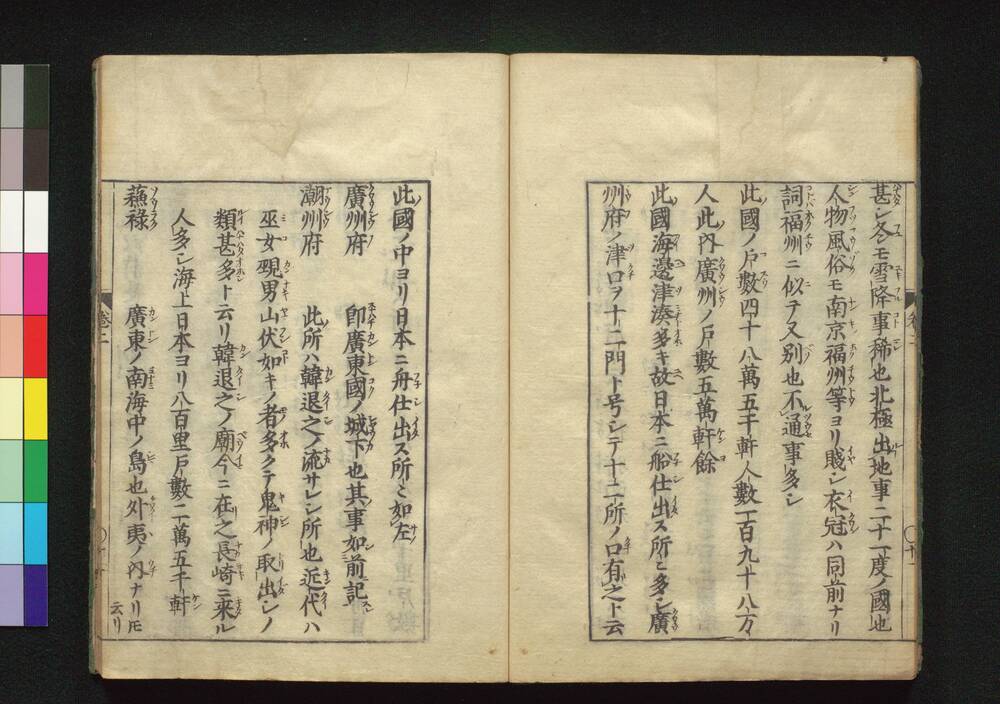 甚シ冬モ雪降事稀也北極出地事二十一度ノ國也
人物風俗モ南京福州等ヨリ賤シ衣冠ハ同前ナリ
詞福州ニ似テ又別也不通事多シ
此國ノ戸數四十八萬五千軒人數一百九十八万
人此內廣州ノ戸數五萬軒餘
此國海邊津湊多キ故日本ニ船仕出ス所々多シ廣
州府ノ津口ヲ十二門ト号シテ十二所ノ口有之ト云
此國ノ中ヨリ日本ニ舟仕出ス所々如左
廣州府 即廣東國ノ城下也其事如前記
潮州府 此所ハ韓退之ノ流サレシ所也近代ハ
巫女覡男山伏如キノ者多クテ鬼神ノ取出シノ
類甚多ト云リ韓退之ノ廟今ニ在之長崎ニ来ル
人多シ海上日本ヨリ八百里戸數二萬五千軒
蘓祿 廣東ノ南海中ノ島也外夷ノ內ナリ𪜈
云リ
卷二